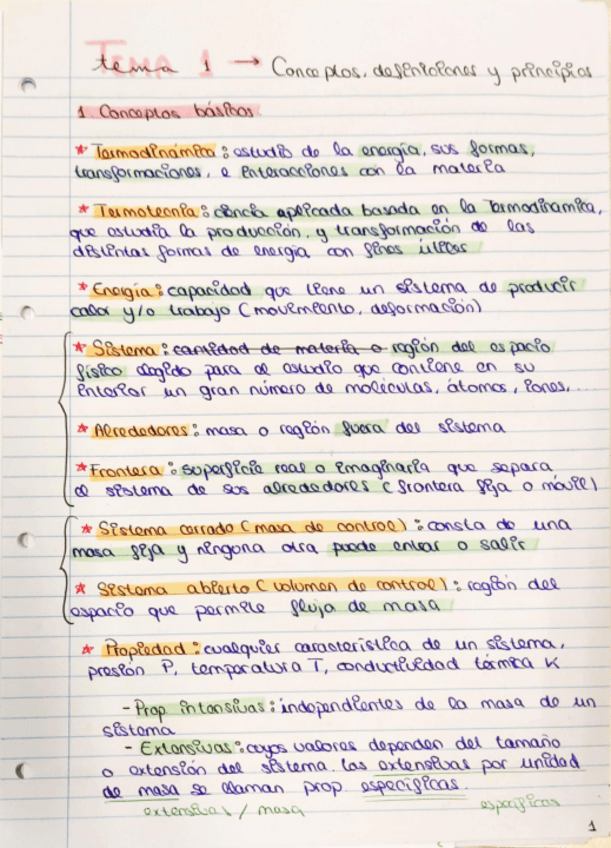 Tema 1
tema 1 → Conceptos, definiciones y principios
1. Conceptos básicos
* Termodinámica: estudio de la energía, sus formas,
transformaciones, e interacciones con la materia
* Termotecnia: ciencia aplicada basada en la Termodinamica,
que estudia la producción, y transformación de las
distintas formas de energia con fines útiles
* Energía: capacidad que tiene un sistema de producir
calor y/o trabajo (movimiento, deformación)
* Sistema: cantidad de materia o región del espacio
físico elegido para el estudio que contiene en su
interior un gran número de moléculas, átomos, iones,...
* Alrededores: masa o región fuera del sistema
* Frontera: superficie real o imaginaria que separa
el sistema de sus alrededores (frontera fija o móvil)
* Sistema cerrado (masa de control): consta de una
masa fija y ninguna otra puede entrar o salir
* Sistema abierto (volumen de control): región del
espacio que permite fluja de masa
* Propiedad: cualquier característica de un sistema,
presión P, temperatura T, conductividad térmica K
- Prop. intensivas: independientes de la masa de un
sistema
- Extensivas: cuyos valores dependen del tamaño
o extensión del sistema. Las extensivas por unidad
de masa se llaman prop. específicas.
extensivas / masa específicas
1